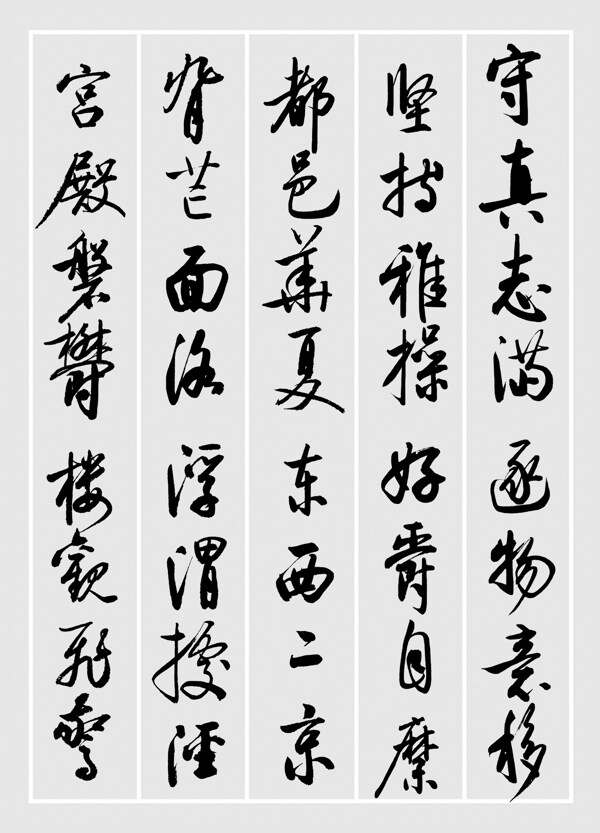 守真志满逐物意移
坚持雅操好爵自縻
都邑华夏东西二京
背芒面洛浮渭据泾
宫殿磐郁楼观飞惊